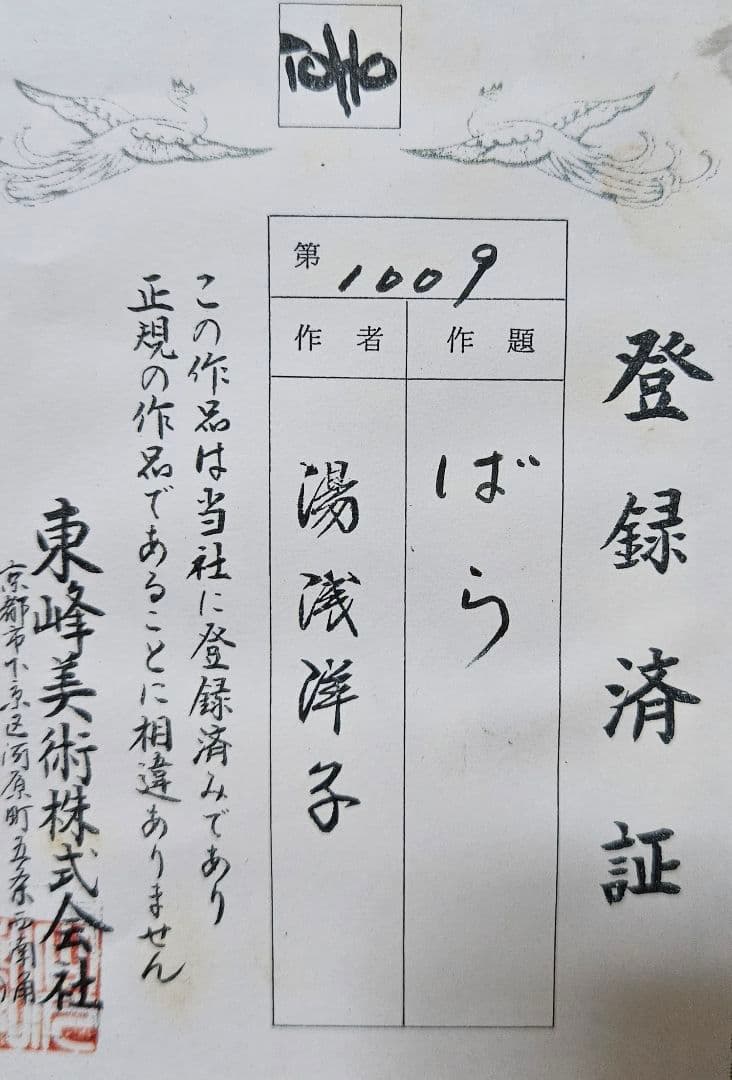 TOHO
登録済証
第1009
作題
ばら
作者
湯浅洋子
この作品は当社に登録済みであり
正規の作品であることに相違ありません
東峰美術株式会社
京都市下京区河原町五条西南角